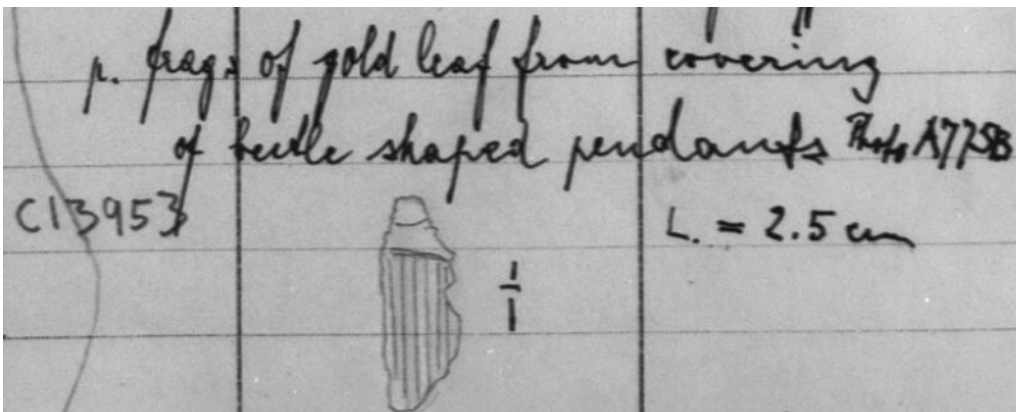 p. frags of gold leaf from covering
of beetle shaped pendants Photo A7758
C13953
L. = 2.5 cm
1/1